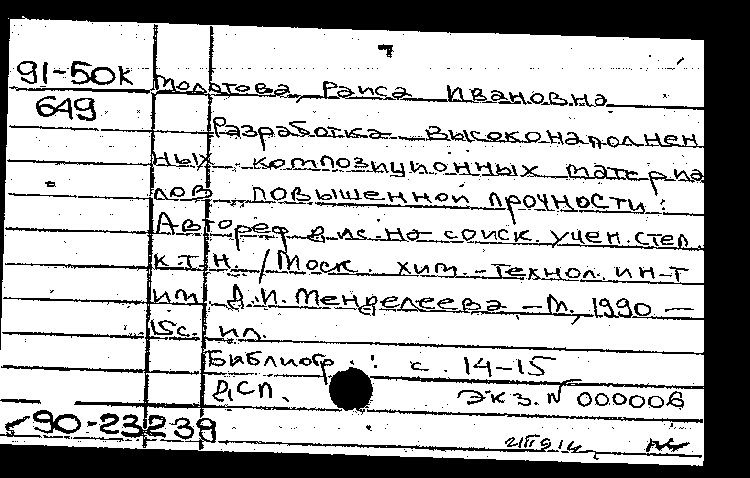 91-50к Молотова, Раиса Ивановна
649
Разработка высоконаполнен
ных композиционных материа
лов повышенной прочности:
Автореф дис. на соиск. учен. степ.
к.т.н. / Моск. хим.-технол. ин-т
им. Д.И. Менделеева. – М., 1990 –
15с. ил.
Библиогр.: с. 14-15
ДСП. Экз. N 000008
90-23239